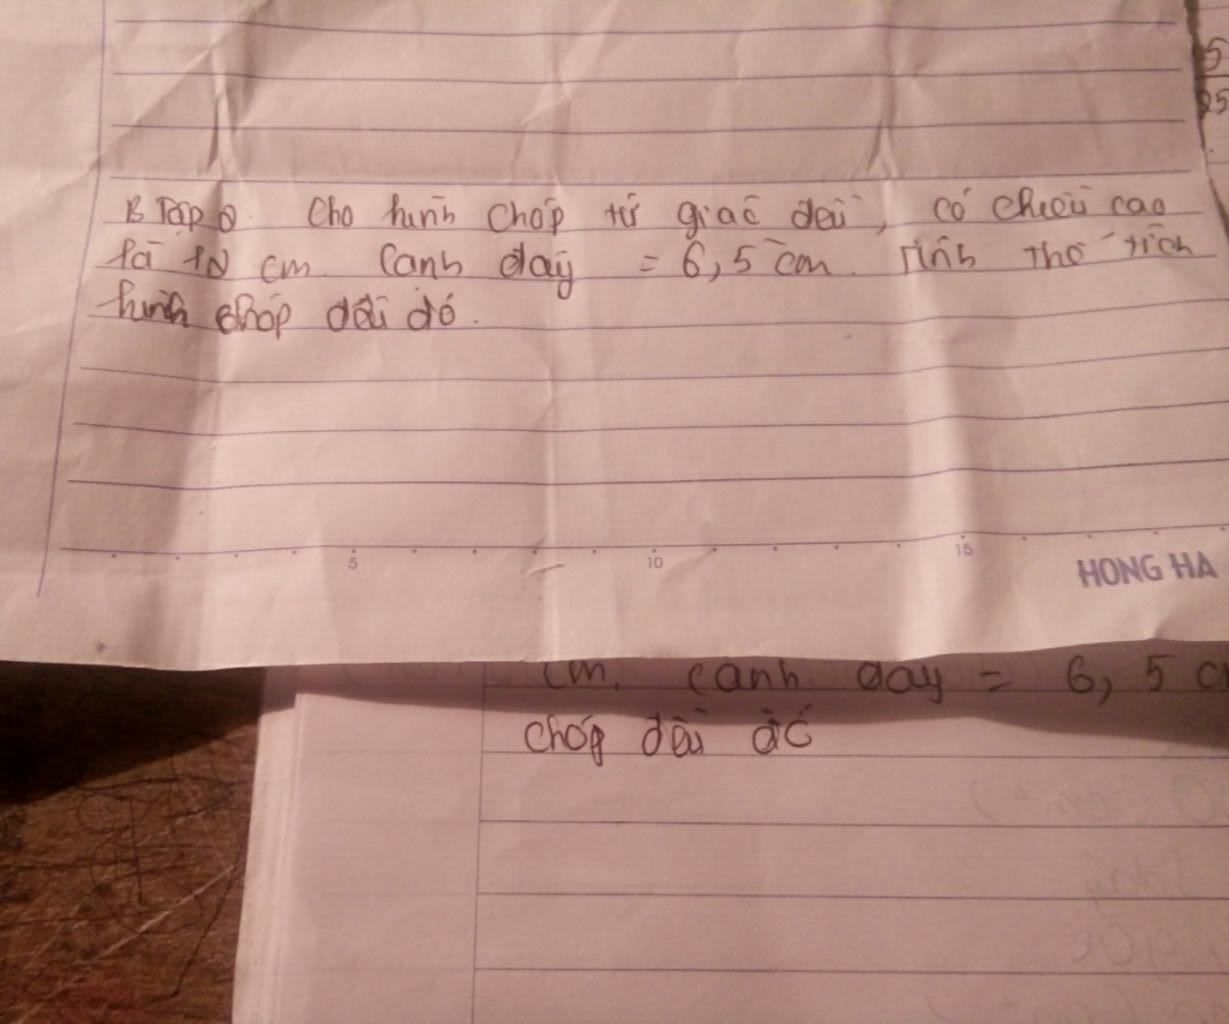 B Tập 8. Cho hình chóp tứ giác đều, có chiều cao
là 12 cm. Cạnh đáy = 6,5 cm. Tính thể tích
hình chóp đều đó.
5 10 15
HONG HA
cm. Cạnh đáy = 6, 5 c
chóp đều đó
5
25